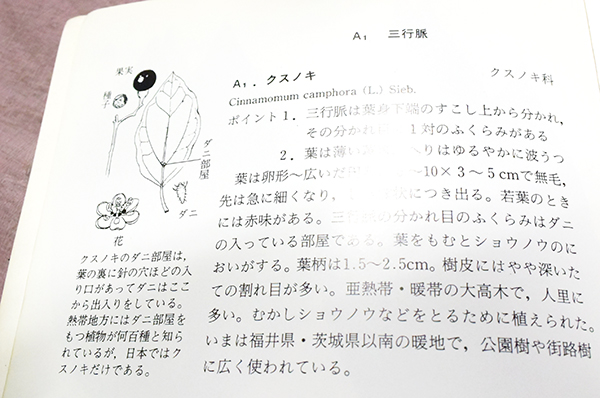 A1 三行脈
果実
種子
ダニ部屋
ダニ
花
クスノキのダニ部屋は,
葉の裏に針の穴ほどの入
り口があってダニはここ
から出入りをしている。
熱帯地方にはダニ部屋を
もつ植物が何百種と知ら
れているが, 日本ではク
スノキだけである。
A1. クスノキ クスノキ科
Cinnamomum camphora (L.) Sieb.
ポイント 1. 三行脈は葉身下端のすこし上から分かれ,
その分かれ 1対のふくらみがある
2. 葉は薄い りはゆるやかに波うつ
葉は卵形〜広いだ 〜10×3〜5cmで無毛,
先は急に細くなり, 状につき出る。若葉のとき
には赤味がある。三行脈の分かれ目のふくらみはダニ
の入っている部屋である。葉をもむとショウノウのに
おいがする。葉柄は1.5〜2.5cm。樹皮にはやや深いた
ての割れ目が多い。亜熱帯・暖帯の大高木で, 人里に
多い。むかしショウノウなどをとるために植えられた。
いまは福井県・茨城県以南の暖地で, 公園樹や街路樹
に広く使われている。